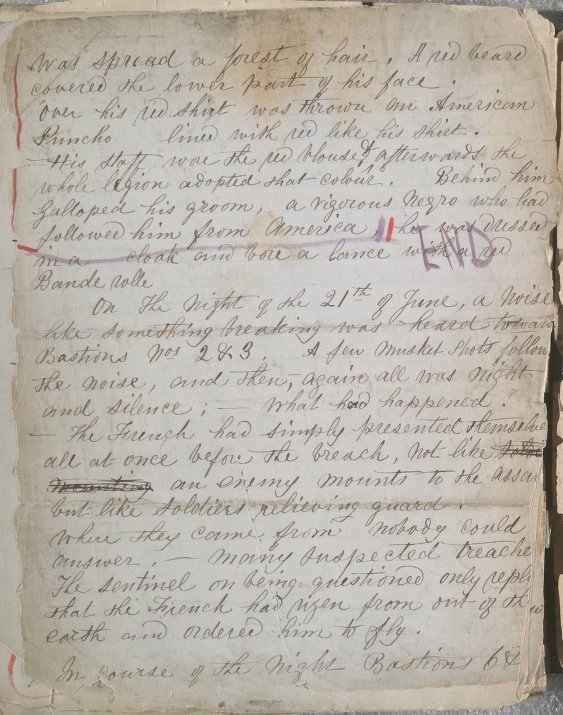 was spread a forest of hair. A red beard
covered the lower part of his face.
Over his red shirt was thrown an American
Puncho lined with red like his shirt.
— His staff wore the red blouse, & afterwards the
whole legion adopted that colour. Behind him
Galloped his groom, a vigorous Negro who had
followed him from America, he was dressed
in a cloak and bore a lance with a red
END
Bande rolle
On the Night of the 21th of June, a Noise
like something breaking was heard toward
Bastions Nos 2 & 3. A few musket shots follow
the noise, and then, again all was Night
and silence; — What had happened?
— The French had simply presented themselve
all at once before the breach, not like
mounting an enemy mounts to the assau
but like soldiers relieving guard.
Where they came from nobody could
answer. — Many suspected treache
The sentinel on being questioned only repli
that the French had rizen from out of the
earth and ordered him to fly.
In course of the Night Bastions 6 &